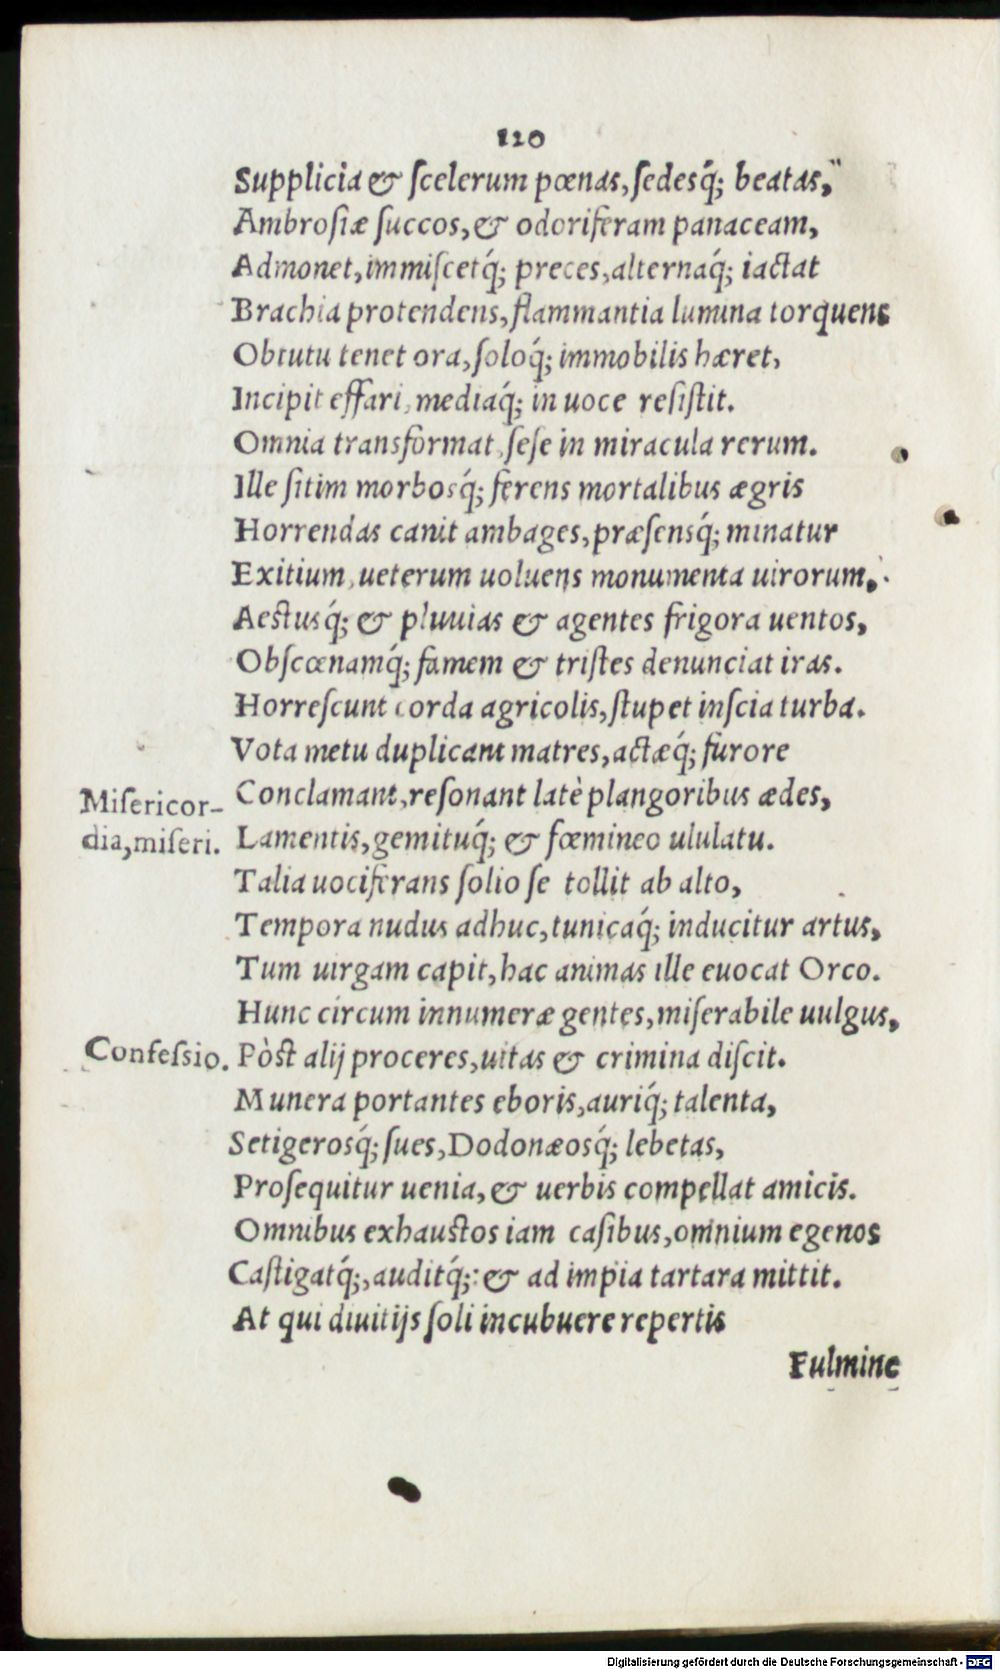 120
Supplicia & ſcelerum pœnas, ſedesq́; beatas,
Ambroſiæ ſuccos, & odoriferam panaceam,
Admonet, immiſcetq́; preces, alternaq́; iactat
Brachia protendens, flammantia lumina torquens
Obtutu tenet ora, ſoloq́; immobilis hæret,
Incipit effari, mediaq́; in uoce reſiſtit.
Omnia transformat ſeſe in miracula rerum.
Ille ſitim morbosq́; ferens mortalibus ægris
Horrendas canit ambages, præſensq́; minatur
Exitium, ueterum uoluens monumenta uirorum,
Aestusq́; & pluuias & agentes frigora uentos,
Obſcœnamq́; famem & triſtes denunciat iras.
Horreſcunt corda agricolis, ſtupet inſcia turba.
Vota metu duplicant matres, actæq́; furore
Miſericor- Conclamant, reſonant latè plangoribus ædes,
dia, miſeri. Lamentis, gemituq́; & fœmineo ululatu.
Talia uociferans ſolio ſe tollit ab alto,
Tempora nudus adhuc, tunicaq́; inducitur artus,
Tum uirgam capit, hac animas ille euocat Orco.
Hunc circum innumeræ gentes, miſerabile uulgus,
Confeſsio. Pòst alij proceres, uitas & crimina diſcit.
Munera portantes eboris, auriq́; talenta,
Setigerosq́; ſues, Dodonæosq́; lebetas,
Proſequitur uenia, & uerbis compellat amicis.
Omnibus exhaustos iam caſibus, omnium egenos
Caſtigatq́;, auditq́;: & ad impia tartara mittit.
At qui diuitijs ſoli incubuere repertis
Fulmine
Digitalisierung gefördert durch die Deutsche Forschungsgemeinschaft - DFG